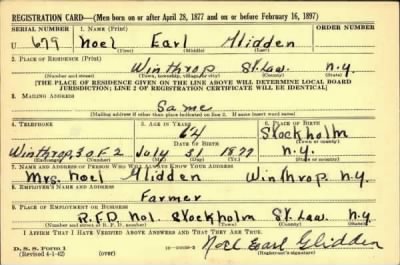 REGISTRATION CARD—(Men born on or after April 28, 1877 and on or before February 16, 1897)
SERIAL NUMBER 1. NAME (Print) ORDER NUMBER
U 679 Noel Earl Glidden
(First) (Middle) (Last)
2. PLACE OF RESIDENCE (Print)
Winthrop St. Law. N.Y.
(Number and street) (Town, township, village, or city) (County) (State)
[THE PLACE OF RESIDENCE GIVEN ON THE LINE ABOVE WILL DETERMINE LOCAL BOARD
JURISDICTION; LINE 2 OF REGISTRATION CERTIFICATE WILL BE IDENTICAL]
3. MAILING ADDRESS
Same
[Mailing address if other than place indicated on line 2. If same insert word same]
4. TELEPHONE 5. AGE IN YEARS 6. PLACE OF BIRTH
64 Stockholm
DATE OF BIRTH (Town or county)
Winthrop 30F2 July 31 1877 N.Y.
(Exchange) (Number) (Mo.) (Day) (Yr.) (State or country)
7. NAME AND ADDRESS OF PERSON WHO WILL ALWAYS KNOW YOUR ADDRESS
Mrs. Noel Glidden Winthrop N.Y.
8. EMPLOYER'S NAME AND ADDRESS
Farmer
9. PLACE OF EMPLOYMENT OR BUSINESS
R.F.D No1. Stockholm St. Law. N.Y.
(Number and street or R. F. D. number) (Town) (County) (State)
I AFFIRM THAT I HAVE VERIFIED ABOVE ANSWERS AND THAT THEY ARE TRUE.
D. S. S. Form 1
(Revised 4-1-42) (over)
Noel Earl Glidden
(Registrant's signature)